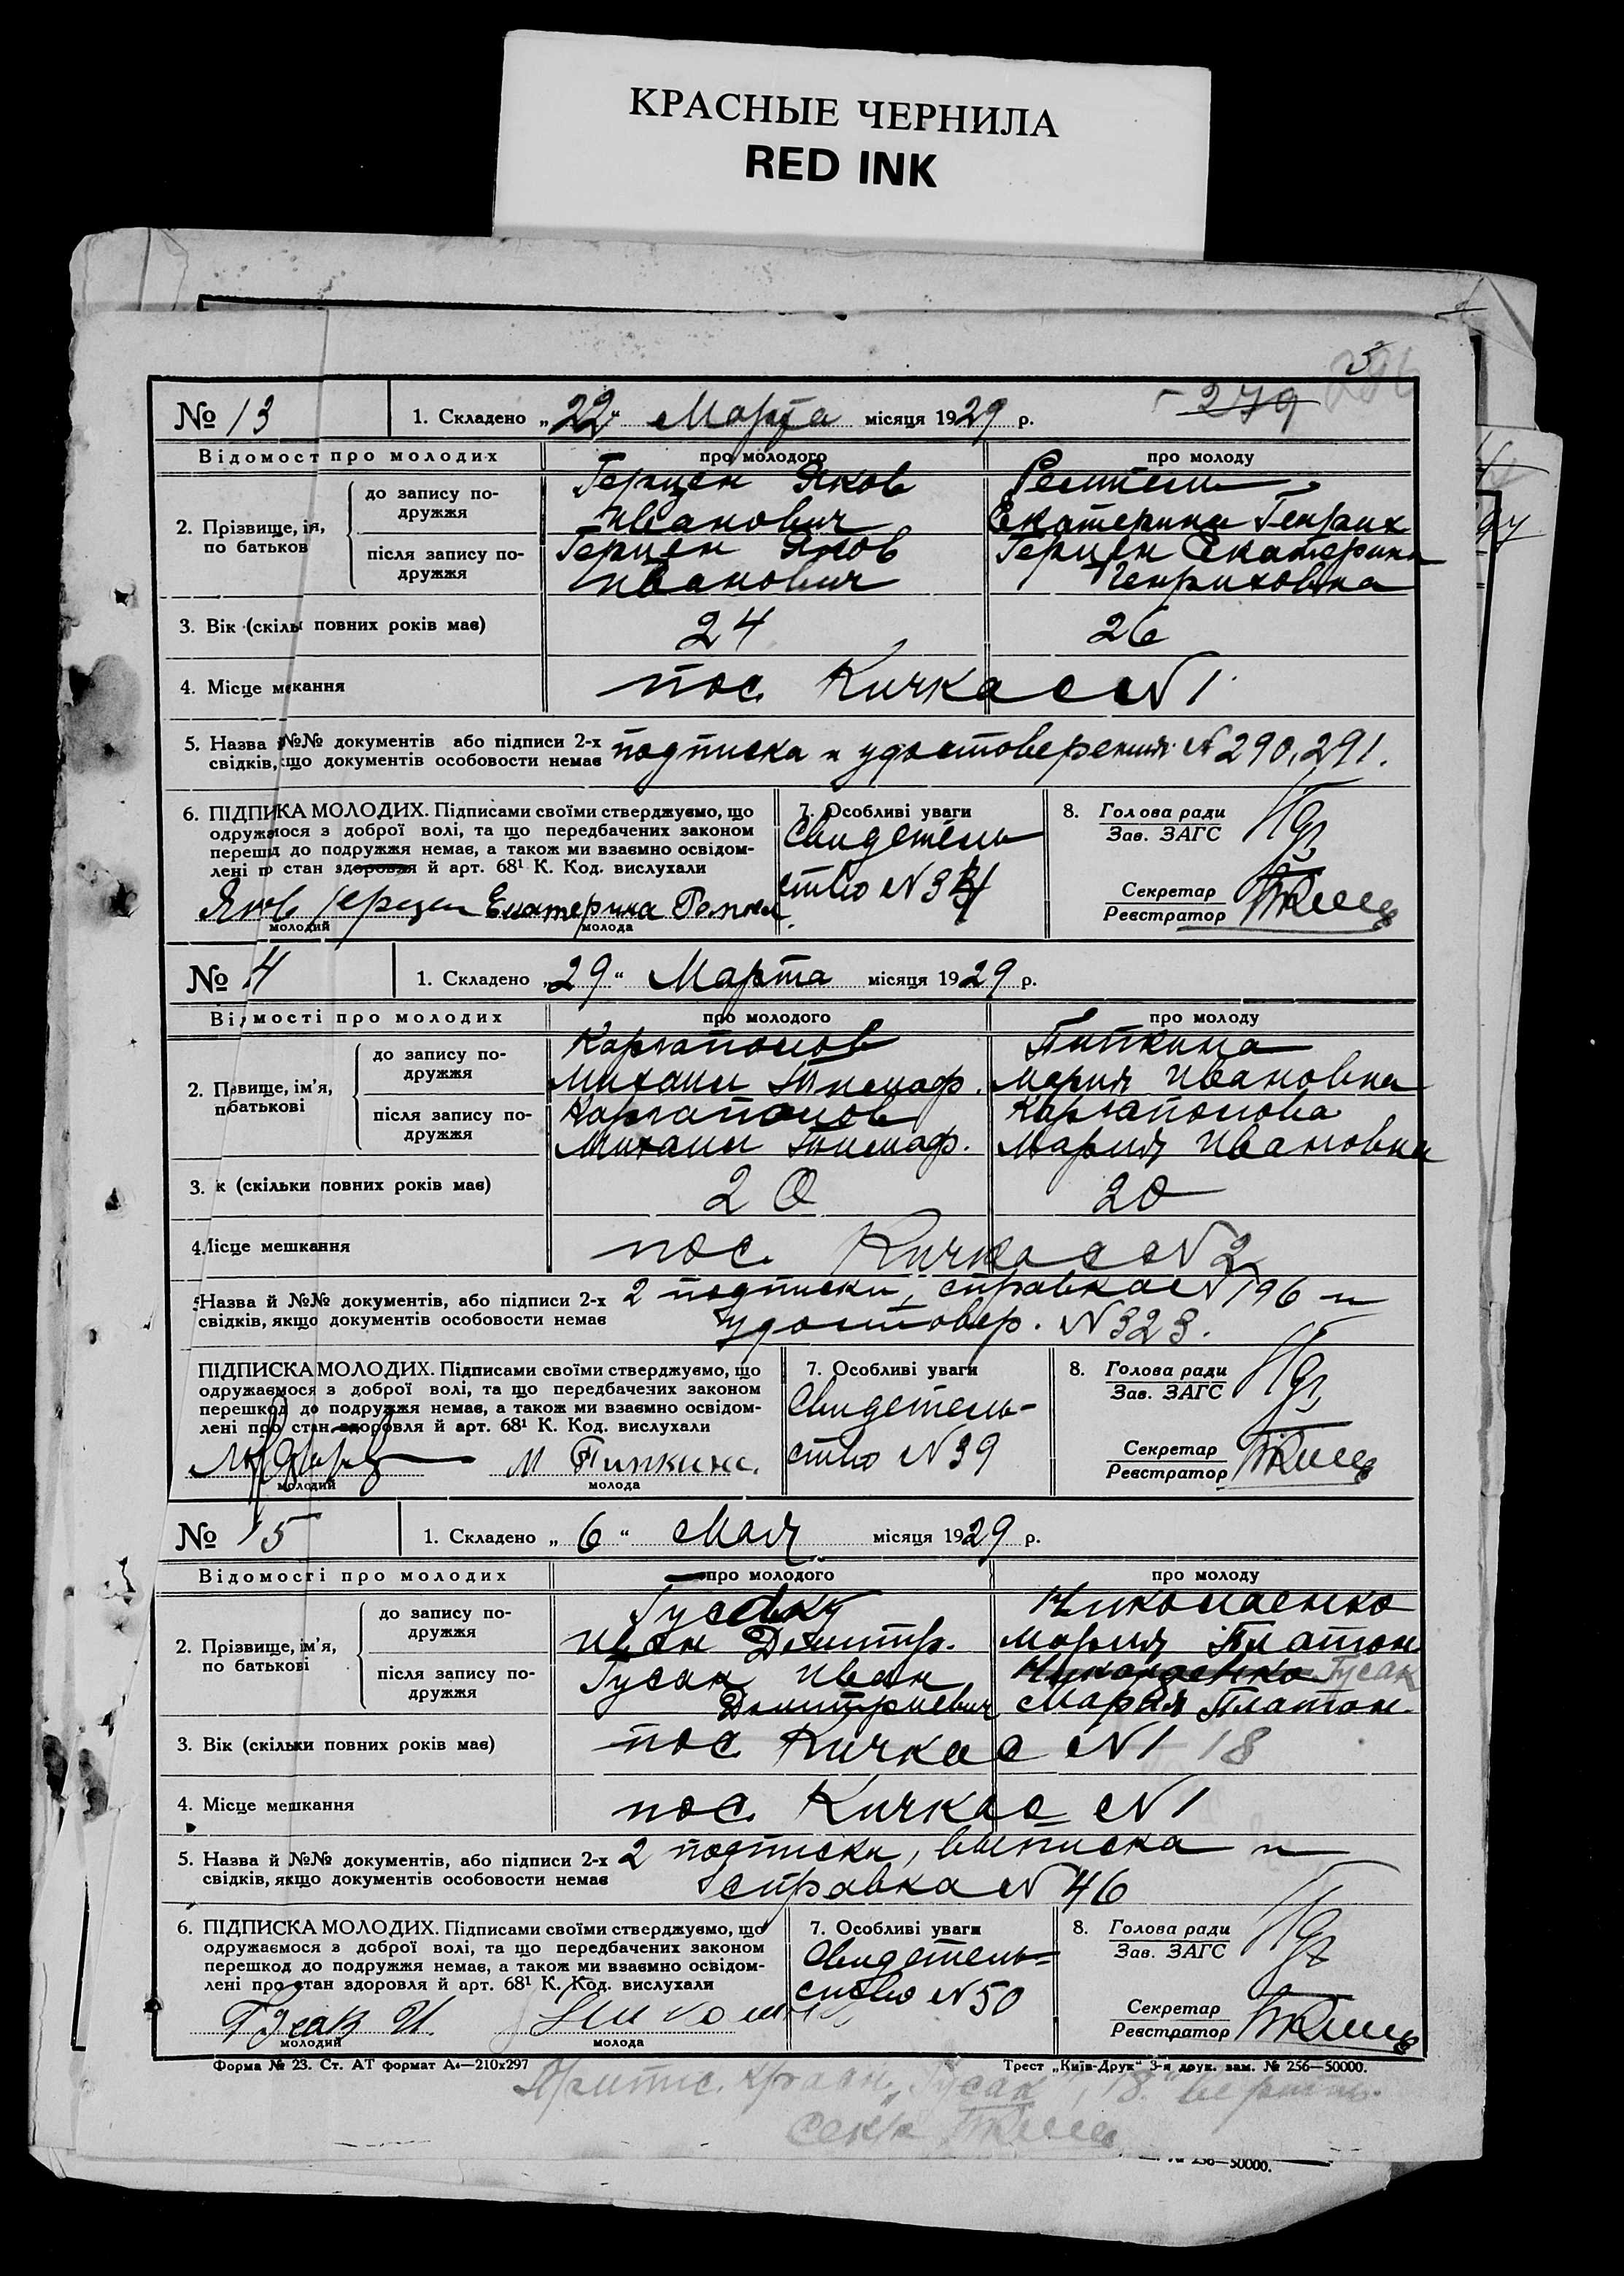 КРАСНЫЕ ЧЕРНИЛА
RED INK
5
279
№ 13
1. Складено „22“ Марта місяця 1929 р.
Відомост про молодих
про молодого
про молоду
2. Прізвище, ія,
по батьков
до запису по-
дружжя
Герцен Яков
Иванович
Екатерина Генрих
після запису по-
дружжя
Герцен Яков
Иванович
Герцен Екатерина
Генриховна
3. Вік (скільк повних років має)
24
26
4. Місце мекання
пос. Кичкас №1
5. Назва №№ документів або підписи 2-х
свідків, що документів особовости немає
подписка и удостоверения №290, 291.
6. ПІДПИКА МОЛОДИХ. Підписами своїми стверджуємо, що
одружаюся з доброї волі, та що передбачених законом
перешд до подружжя немає, а також ми взаємно освідом-
лені п стан здоровля й арт. 68¹ К. Код. вислухали
Яков Герцен
молодий
Екатерина
молода
7. Особливі уваги
Свидетель
ство №34
8. Голова ради
Зав. ЗАГС
Секретар
Реєстратор
№ 4
1. Складено „29“ Марта місяця 1929 р.
Відмості про молодих
про молодого
про молоду
2. Пвище, ім’я,
пбатькові
до запису по-
дружжя
Каргаполов
Михаил
Пипкина
Мария Ивановна
після запису по-
дружжя
Каргаполов
Михаил
Каргаполова
Мария Ивановна
3. к (скільки повних років має)
20
20
4. Місце мешкання
пос. Кичкас №2
Назва й №№ документів, або підписи 2-х
свідків, якщо документів особовости немає
2 подписки, справка №196 и
удостовер. №323.
ПІДПИСКА МОЛОДИХ. Підписами своїми стверджуємо, що
одружаємося з доброї волі, та що передбачених законом
перешкод до подружжя немає, а також ми взаємно освідом-
лені про стан здоровля й арт. 68¹ К. Код. вислухали
молодий
М Пипкина.
молода
7. Особливі уваги
Свидетель-
ство №39
8. Голова ради
Зав. ЗАГС
Секретар
Реєстратор
№ 15
1. Складено „6“ Мая місяця 1929 р.
Відомості про молодих
про молодого
про молоду
2. Прізвище, ім’я,
по батькові
до запису по-
дружжя
Гусак
Иван Дмитр.
Николаенко
Мария Платон.
після запису по-
дружжя
Гусак Иван
Дмитриевич
Николаенко Гусак
Мария Платон.
3. Вік (скільки повних років має)
пос Кичкас №1 18
4. Місце мешкання
пос. Кичкас №1
5. Назва й №№ документів, або підписи 2-х
свідків, якщо документів особовости немає
2 подписки, выписка и
справка №46
6. ПІДПИСКА МОЛОДИХ. Підписами своїми стверджуємо, що
одружаємося з доброї волі, та що передбачених законом
перешкод до подружжя немає, а також ми взаємно освідом-
лені про стан здоровля й арт. 68¹ К. Код. вислухали
Гусак И.
молодий
молода
7. Особливі уваги
Свидетель-
ство №50
8. Голова ради
Зав. ЗАГС
Секретар
Реєстратор
Форма № 23. Ст. АТ формат А₄—210х297
Трест „Київ-Друк“ 3-я друк. зам. № 256—50000.
„Гусак“, „18“ верить.
Секр.
№ 256—50000.